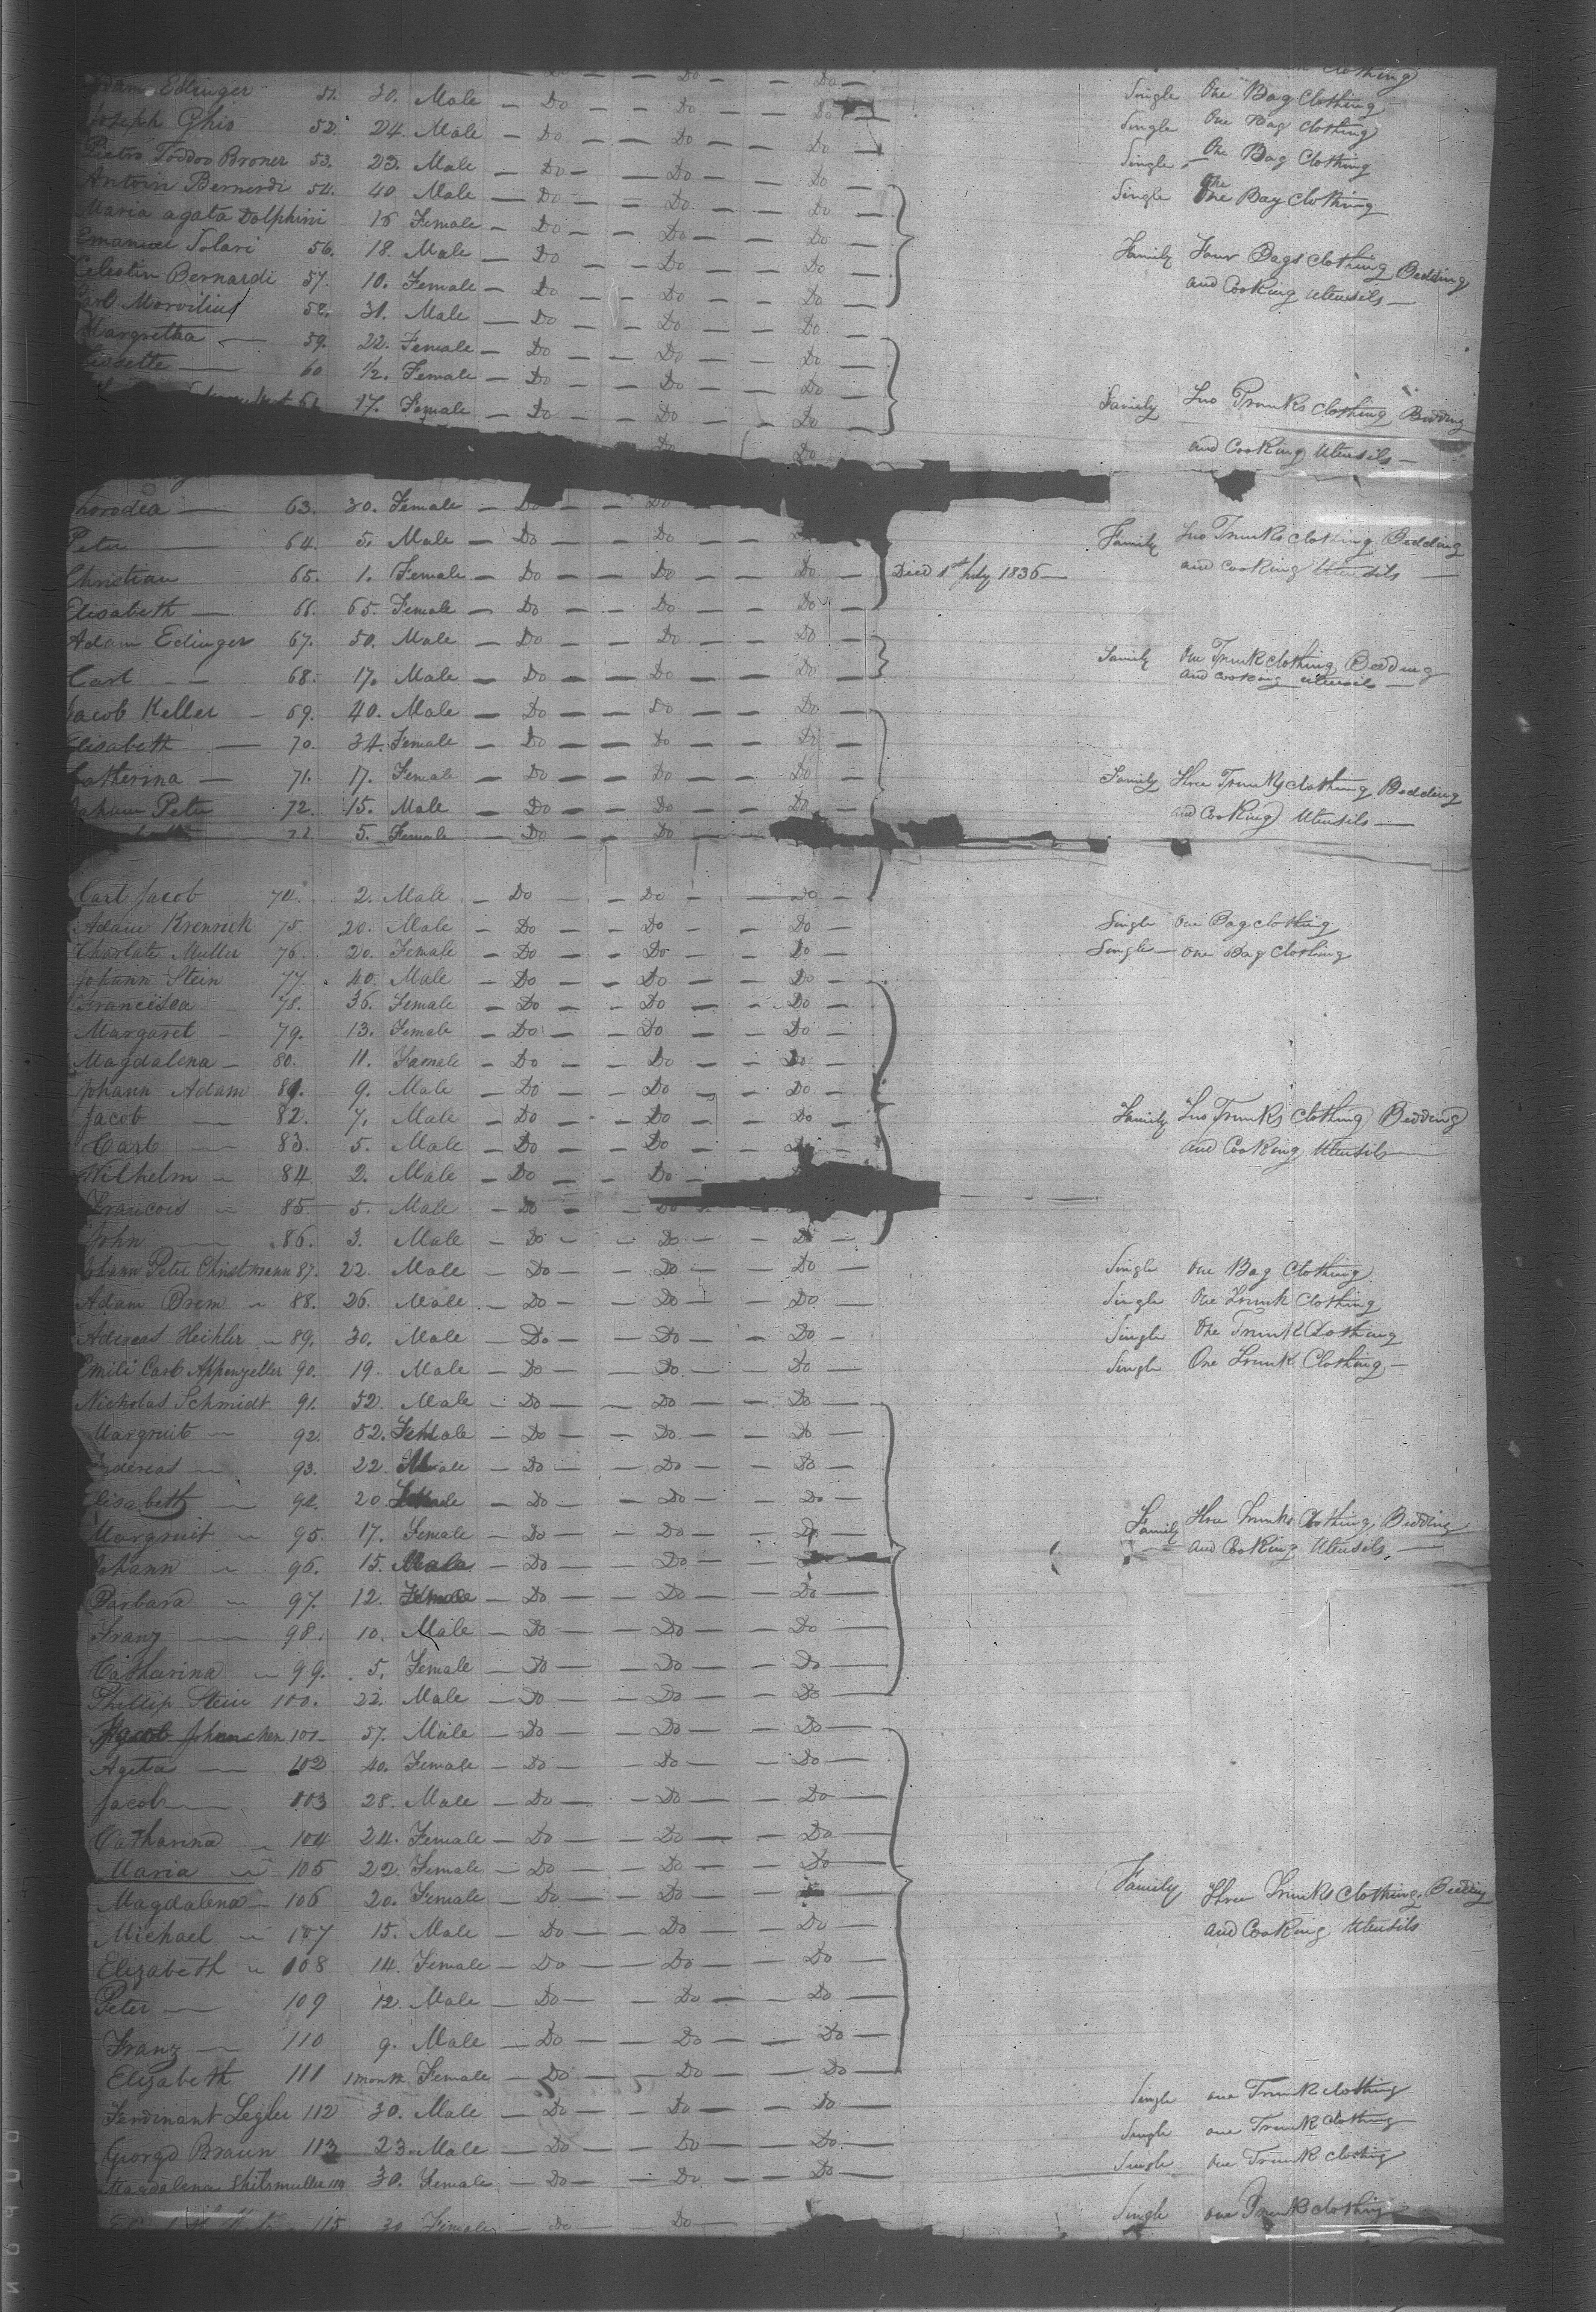 Do — — Do — — Do — Clothing
Adam Edinger 51. 30. Male — Do — — Do — — Do Single One Bag Clothing
Joseph Ghio 52. 24. Male — Do — — Do — — Do Single One Bag Clothing
Pietro Toddoo Broner 53. 23. Male — Do — — Do — — Do Single — One Bag Clothing
Antoin Bernardi 54. 40. Male — Do — — Do — — Do Single One Bag Clothing
Maria agata Dolphini 16 Female — Do — — Do — — Do —
Emanuel Solari 56. 18. Male — Do — — Do — — Do — Family Four Bags Clothing Bedding
Celestin Bernardi 57. 10. Female — Do — — Do — — Do — and Cooking Utensils —
Carl 58. 31. Male — Do — — Do — — Do —
Margretha — 59. 22. Female — Do — — Do — — Do —
60 1/2. Female — Do — — Do — — Do —
61. 17. Female — Do — — Do — — Do — Family Two Trunks Clothing Bedding
Do Do and Cooking Utensils —
63. 30. Female — Do — — Do
Peter — 64. 5. Male — Do — — Do — — Family Two Trunks Clothing Bedding
Christian 65. 1. Female — Do — — Do — — Do — Died 1st July 1836 — and Cooking Utensils —
Elisabeth — 66. 65. Female — Do — — Do — — Do —
Adam Edinger 67. 50. Male — Do — — Do — — Do — Family One Trunk Clothing Bedding
Carl — 68. 17. Male — Do — — Do — — Do — and Cooking Utensils —
Jacob Keller — 69. 40. Male — Do — — Do — — Do —
Elisabeth — 70. 34. Female — Do — — Do — — Do —
Catherina — 71. 17. Female — Do — — Do — — Do — Family Three Trunks Clothing Bedding
Johann Peter 72. 15. Male — Do — — Do — — Do — and Cooking Utensils —
5. Female — Do — — Do — —
Carl Jacob 74. 2. Male — Do — Do — — Do —
Adam 75. 20. Male — Do — Do — — Do — Single One Bag Clothing
Charlate Muller 76. 20. Female — Do — — Do — — Do Single — One Bag Clothing
Johann Stein 77. 40. Male — Do — — Do — — Do —
Francisca 78. 36. Female — Do — — Do — — Do —
Margaret — 79. 13. Female — Do — — Do — — Do —
Magdalena — 80. 11. Female — Do — — Do — — Do —
Johann Adam 81. 9. Male — Do — — Do — — Do —
Jacob — 82. 7. Male — Do — — Do — — Do — Family Two Trunks Clothing Bedding
Carl — 83. 5. Male — Do — — Do — — Do and Cooking Utensils —
Wilhelm — 84. 2. Male — Do — — Do —
Francois — 85. 5. Male — Do — — Do —
John — 86. 3. Male — Do — — Do — — Do —
Johann Peter Christmann 87. 22. Male — Do — — Do — — Do — Single One Bag Clothing
Adam Brem — 88. 26. Male — Do — — Do — — Do — Single One Trunk Clothing
Adereas — 89. 30. Male — Do — — Do — — Do — Single One Trunk Clothing
Emili Carl Appenzeller 90. 19. Male — Do — — Do — — Do — Single One Trunk Clothing —
Nickolas Schmidt 91. 52. Male — Do — — Do — — Do —
Margruit — 92. 52. Female — Do — — Do — — Do —
Andereas — 93. 22 Male — Do — — Do — — Do —
Elisabeth — 94. 20 Female — Do — — Do — — Do —
Margruit — 95. 17. Female — Do — — Do — — Do — Family Three Trunks Clothing Bedding
Johann — 96. 15. Male — Do — — Do — — and Cooking Utensils —
Barbara — 97. 12. Female — Do — — Do — — Do —
Franz — 98. 10. Male — Do — — Do — — Do —
Catharina — 99. 5. Female — Do — — Do — — Do —
Phillip Stein 100. 22. Male — Do — — Do — — Do —
Jacob 101 — 57. Male — Do — — Do — — Do —
Ageta — 102 40. Female — Do — — Do — — Do —
Jacob — 103 28. Male — Do — — Do — — Do —
Catharina — 104 24. Female — Do — — Do — — Do —
Maria — 105 22 Female — Do — — Do — — Do — Family
Magdalena — 106 20. Female — Do — — Do — — Three Trunks Clothing, Bedding
Michael — 107 15. Male — Do — — Do — — Do — and Cooking Utensils
Elizabeth — 108 14. Female — Do — — Do — — Do —
Peter — 109 12. Male — Do — — Do — — Do —
Franz — 110 9. Male — Do — — Do — — Do —
Elizabeth 111 1 month Female — Do — — Do — — Do —
Ferdinant Legler 112 30. Male — Do — — Do — — Do — Single one Trunk clothing
Gorge Braun 113 23. Male — Do — — Do — — Do — Single one Trunk Clothing
Magdalena 114 30. Female — Do — — Do — — Do — Single one Trunk clothing
115 30 Female — Do — — Do — Single one Trunk clothing